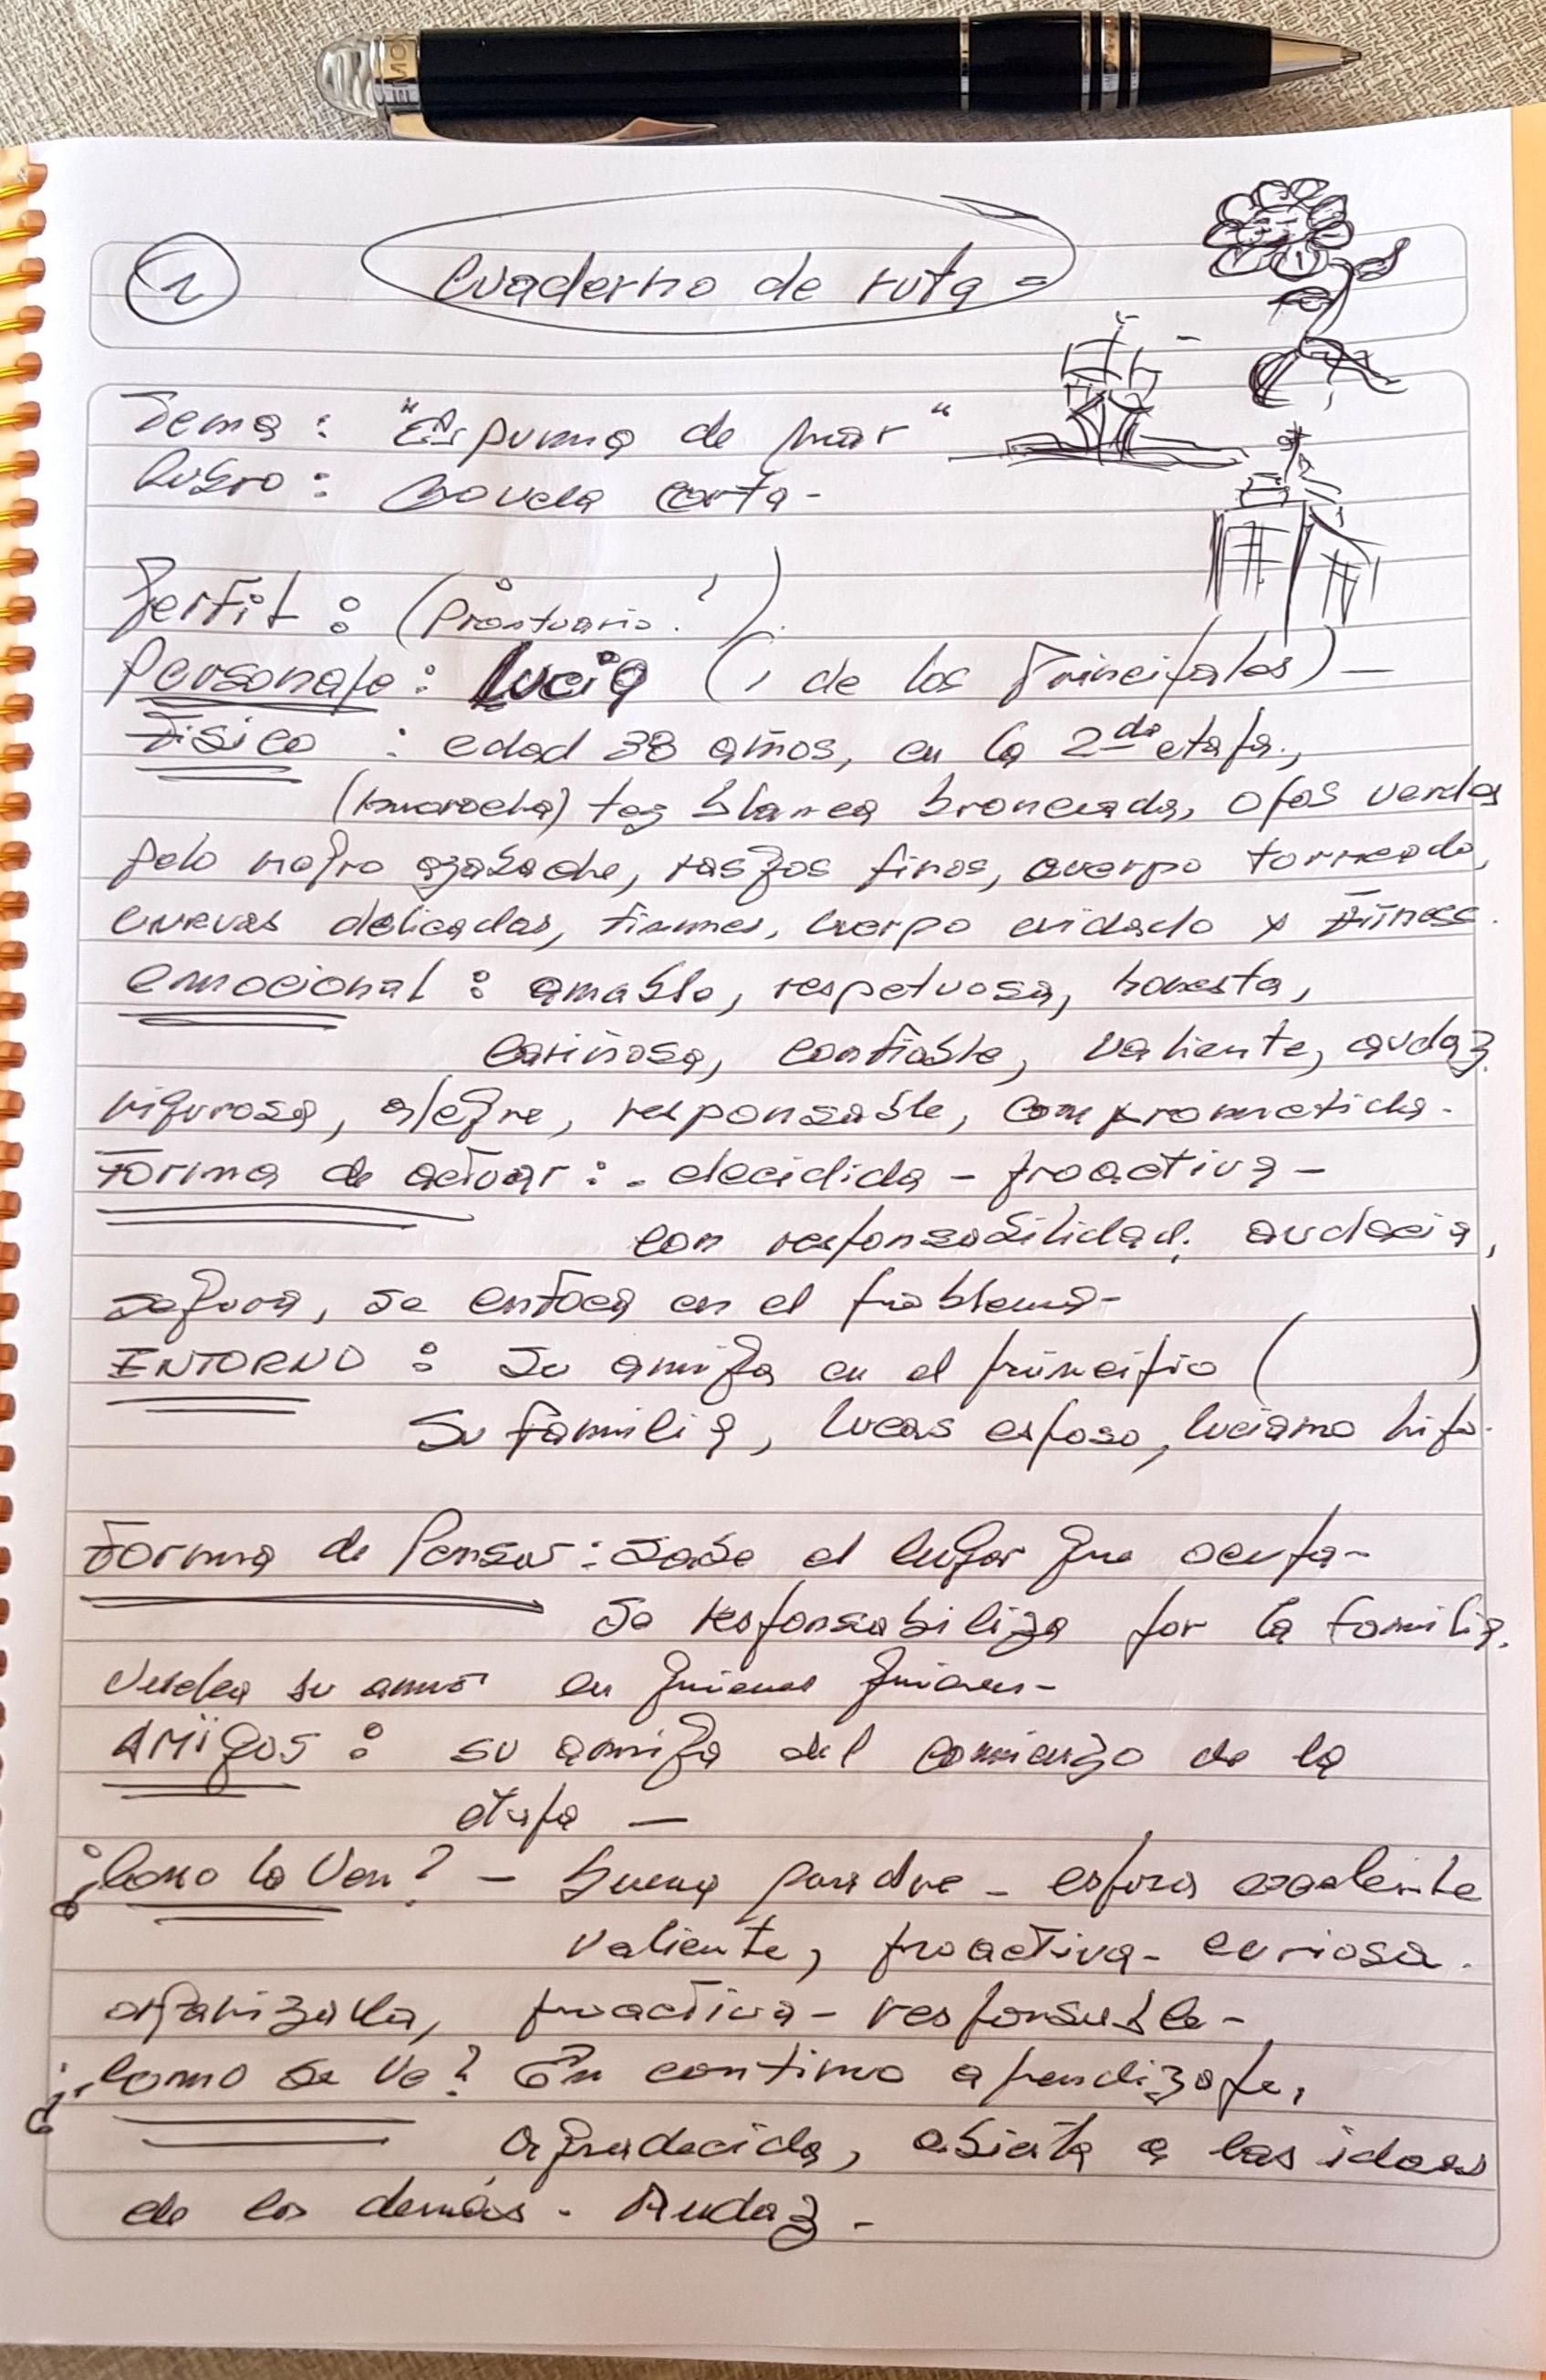 1
Cuaderno de ruta =
Tema : "Espuma de mar"
Rubro : Novela corta -
Perfil : (Prontuario !)
Personaje : Lucía (1 de los Principales) -
Físico : edad 38 años, en la 2da etapa,
(morocha) tez blanca bronceada, ojos verdes
pelo negro azabache, rasgos finos, cuerpo torneado,
curvas delicadas, firmes, cuerpo cuidado x Fitness.
emocional : amable, respetuosa, honesta,
cariñosa, confiable, valiente, audaz
rigurosa, alegre, responsable, comprometida.
Forma de actuar : - decidida - proactiva -
con responsabilidad, audacia,
segura, se enfoca en el problema -
ENTORNO : Su amiga en el principio ( )
Su familia, Lucas esposo, Luciano hijo.
Forma de Pensar : Sabe el lugar que ocupa -
Se responsabiliza por la familia.
su amor en quienes quieren -
AMigos : su amiga del comienzo de la
etapa -
¿Como la Ven? - buena madre - esposa excelente
valiente, proactiva - curiosa.
organizada, proactiva - responsable -
¿Como se Ve? En continuo aprendizaje,
agradecida, abierta a las ideas
de los demás - Audaz -